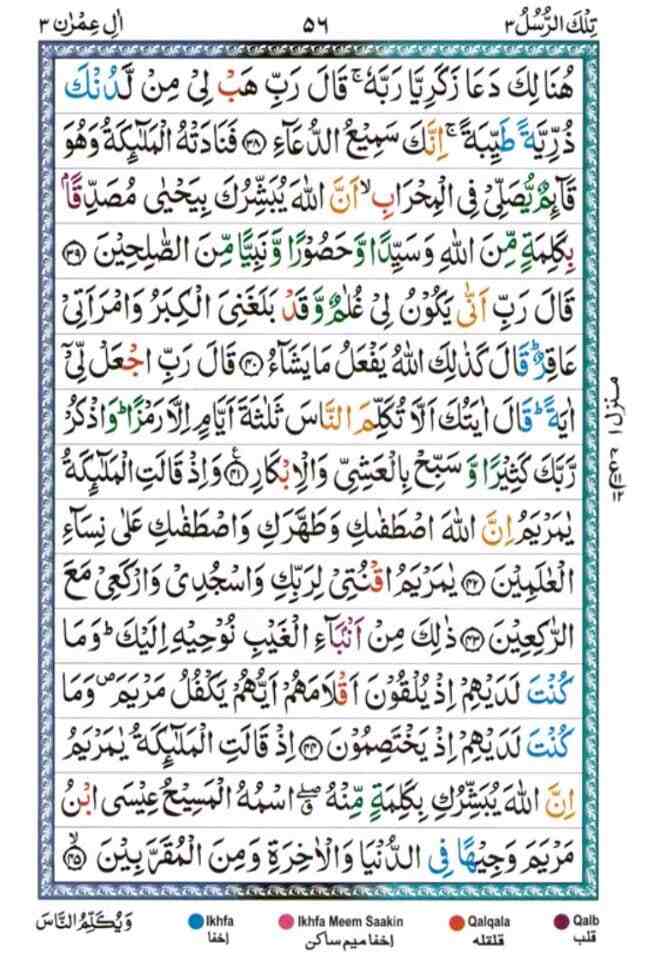 تِلْكَ الرُّسُلُ ٣
٥٦
اٰلِ عِمْرٰن ٣
هُنَالِكَ دَعَا زَكَرِيَّا رَبَّهٗ ۚ قَالَ رَبِّ هَبْ لِیْ مِنْ لَّدُنْكَ
ذُرِّيَّةً طَيِّبَةً ۚ اِنَّكَ سَمِيْعُ الدُّعَآءِ ﴿٣٨﴾ فَنَادَتْهُ الْمَلٰٓئِكَةُ وَهُوَ
قَآئِمٌ يُّصَلِّیْ فِی الْمِحْرَابِ ۙ اَنَّ اللّٰهَ يُبَشِّرُكَ بِيَحْيٰى مُصَدِّقًۢا
بِكَلِمَةٍ مِّنَ اللّٰهِ وَسَيِّدًا وَّحَصُوْرًا وَّنَبِيًّا مِّنَ الصّٰلِحِيْنَ ﴿٣٩﴾
قَالَ رَبِّ اَنّٰى يَكُوْنُ لِیْ غُلٰمٌ وَّقَدْ بَلَغَنِیَ الْكِبَرُ وَامْرَاَتِیْ
عَاقِرٌ ؕ قَالَ كَذٰلِكَ اللّٰهُ يَفْعَلُ مَا يَشَآءُ ﴿٤٠﴾ قَالَ رَبِّ اجْعَلْ لِّیْۤ
اٰيَةً ؕ قَالَ اٰيَتُكَ اَلَّا تُكَلِّمَ النَّاسَ ثَلٰثَةَ اَيَّامٍ اِلَّا رَمْزًا ؕ وَاذْكُرْ
رَّبَّكَ كَثِيْرًا وَّسَبِّحْ بِالْعَشِیِّ وَالْاِبْكَارِ ﴿٤١﴾ وَاِذْ قَالَتِ الْمَلٰٓئِكَةُ
يٰمَرْيَمُ اِنَّ اللّٰهَ اصْطَفٰىكِ وَطَهَّرَكِ وَاصْطَفٰىكِ عَلٰى نِسَآءِ
الْعٰلَمِيْنَ ﴿٤٢﴾ يٰمَرْيَمُ اقْنُتِیْ لِرَبِّكِ وَاسْجُدِیْ وَارْكَعِیْ مَعَ
الرّٰكِعِيْنَ ﴿٤٣﴾ ذٰلِكَ مِنْ اَنْۢبَآءِ الْغَيْبِ نُوْحِيْهِ اِلَيْكَ ؕ وَمَا
كُنْتَ لَدَيْهِمْ اِذْ يُلْقُوْنَ اَقْلَامَهُمْ اَيُّهُمْ يَكْفُلُ مَرْيَمَ ۪ وَمَا
كُنْتَ لَدَيْهِمْ اِذْ يَخْتَصِمُوْنَ ﴿٤٤﴾ اِذْ قَالَتِ الْمَلٰٓئِكَةُ يٰمَرْيَمُ
اِنَّ اللّٰهَ يُبَشِّرُكِ بِكَلِمَةٍ مِّنْهُ ۖۗ اسْمُهُ الْمَسِيْحُ عِيْسَى ابْنُ
مَرْيَمَ وَجِيْهًا فِی الدُّنْيَا وَالْاٰخِرَةِ وَمِنَ الْمُقَرَّبِيْنَ ﴿٤٥﴾ ۙ
منزل ١
وَيُكَلِّمُ النَّاسَ
Ikhfa
اخفا
Ikhfa Meem Saakin
اخفا میم ساکن
Qalqala
قلقله
Qalb
قلب